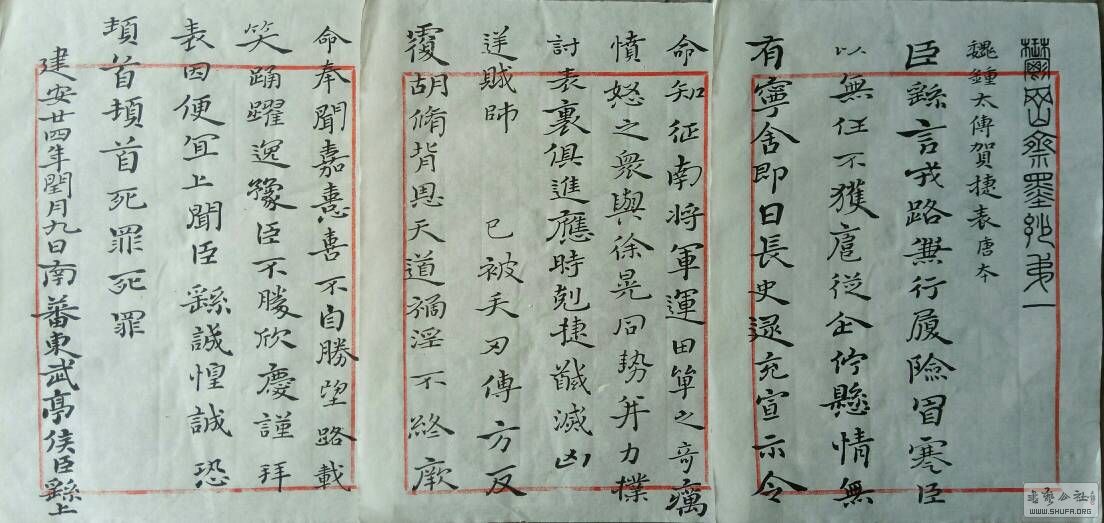 鬱岡齋墨妙弟一
魏鍾太傅賀捷表唐本
臣繇言戎路兼行履險冒寒臣
以無任不獲扈從企佇懸情無
有寧舍即日長史逯充宣示令
命知征南將軍運田單之奇癘
憤怒之衆與徐晃同勢并力撲
討表裏俱進應時剋捷馘滅凶
逆賊帥 已被矢刃傅方反
覆胡脩背恩天道禍淫不終厥
命奉聞嘉憙喜不自勝望路載
笑踊躍逸豫臣不勝欣慶謹拜
表因便宜上聞臣繇誠惶誠恐
頓首頓首死罪死罪
建安廿四年閏月九日南蕃東武亭侯臣繇上
書藝公社
WWW.SHUFA.ORG